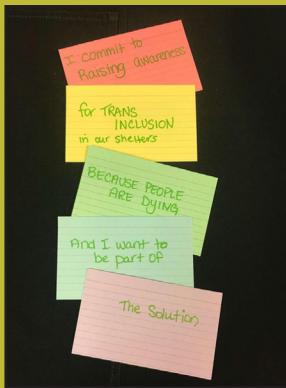 I commit to
Raising awareness
for TRANS
INCLUSION
in our shelters
BECAUSE PEOPLE
ARE DYING
And I want to
be part of
The Solution